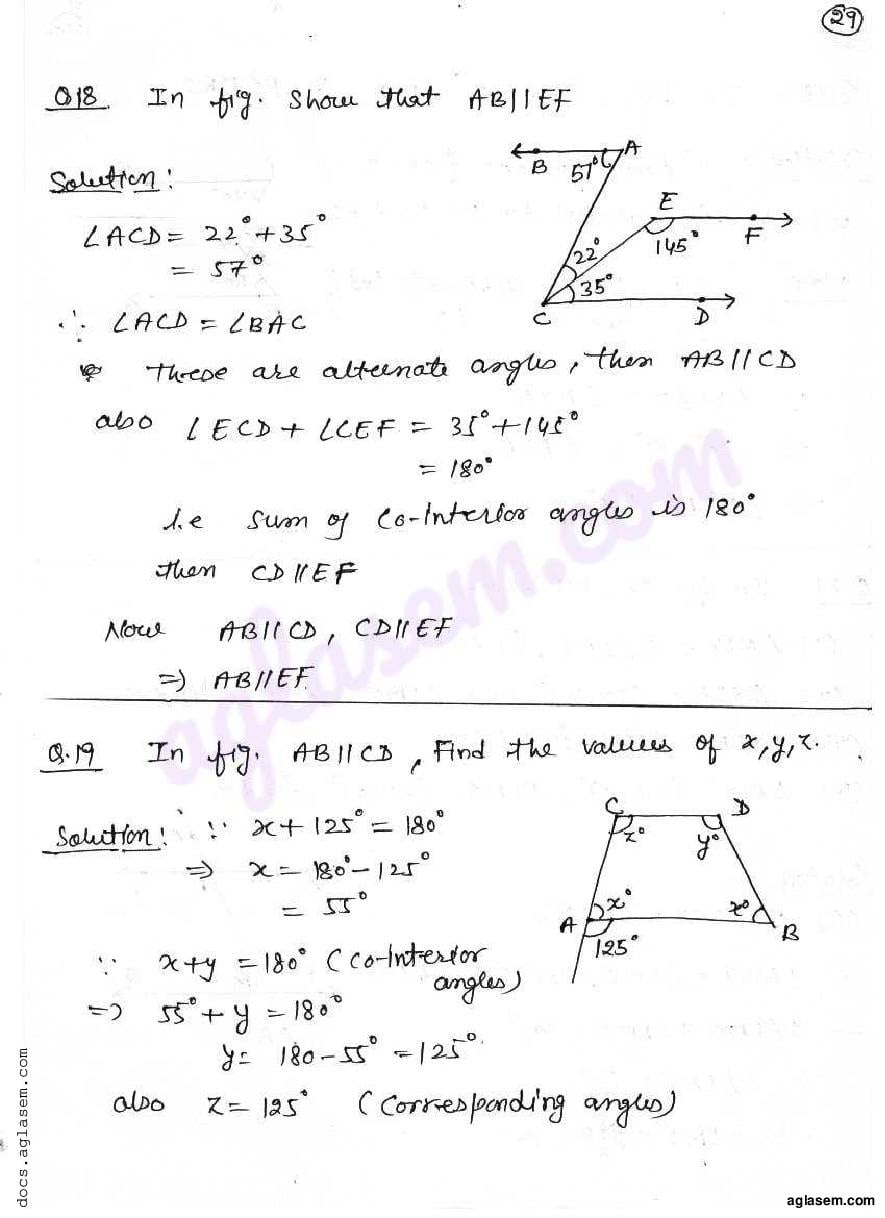 29
Q18. In fig. Show that AB||EF
Solution:
∠ACD = 22° + 35°
= 57°
∴ ∠ACD = ∠BAC
These are alternate angles, then AB//CD
also ∠ECD + ∠CEF = 35° + 145°
= 180°
i.e sum of Co-Interior angles is 180°
then CD//EF
Now AB//CD, CD//EF
=> AB//EF
A
B
57°
E
F
145°
22°
35°
C
D
Q.19 In fig. AB||CD, Find the values of x, y, z.
Solution: ∵ x + 125° = 180°
=> x = 180° - 125°
= 55°
∵ x+y = 180° (Co-Interior
angles)
=> 55° + y = 180°
y = 180 - 55° = 125°
also z = 125° (Corresponding angles)
C
D
z°
y°
A
x°
x°
B
125°
aglasem.com
docs.aglasem.com
aglasem.com